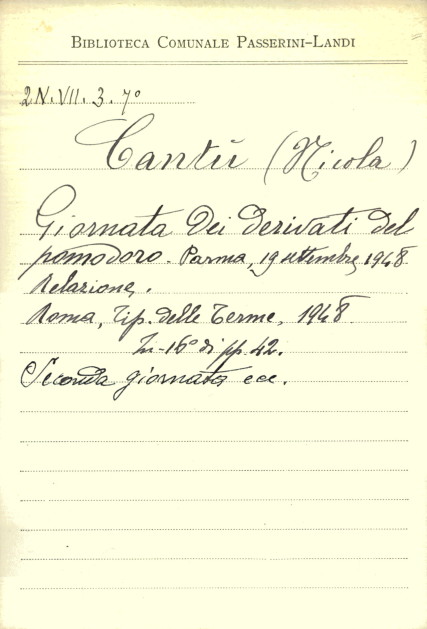 BIBLIOTECA COMUNALE PASSERINI-LANDI
2N.VII.3.7º
Cantù (Nicola)
Giornata dei derivati del
pomodoro. Parma, 19 settembre 1948
Relazione.
Roma, Tip. delle Terme, 1948
In-16º di pp. 42.
Seconda giornata ecc.